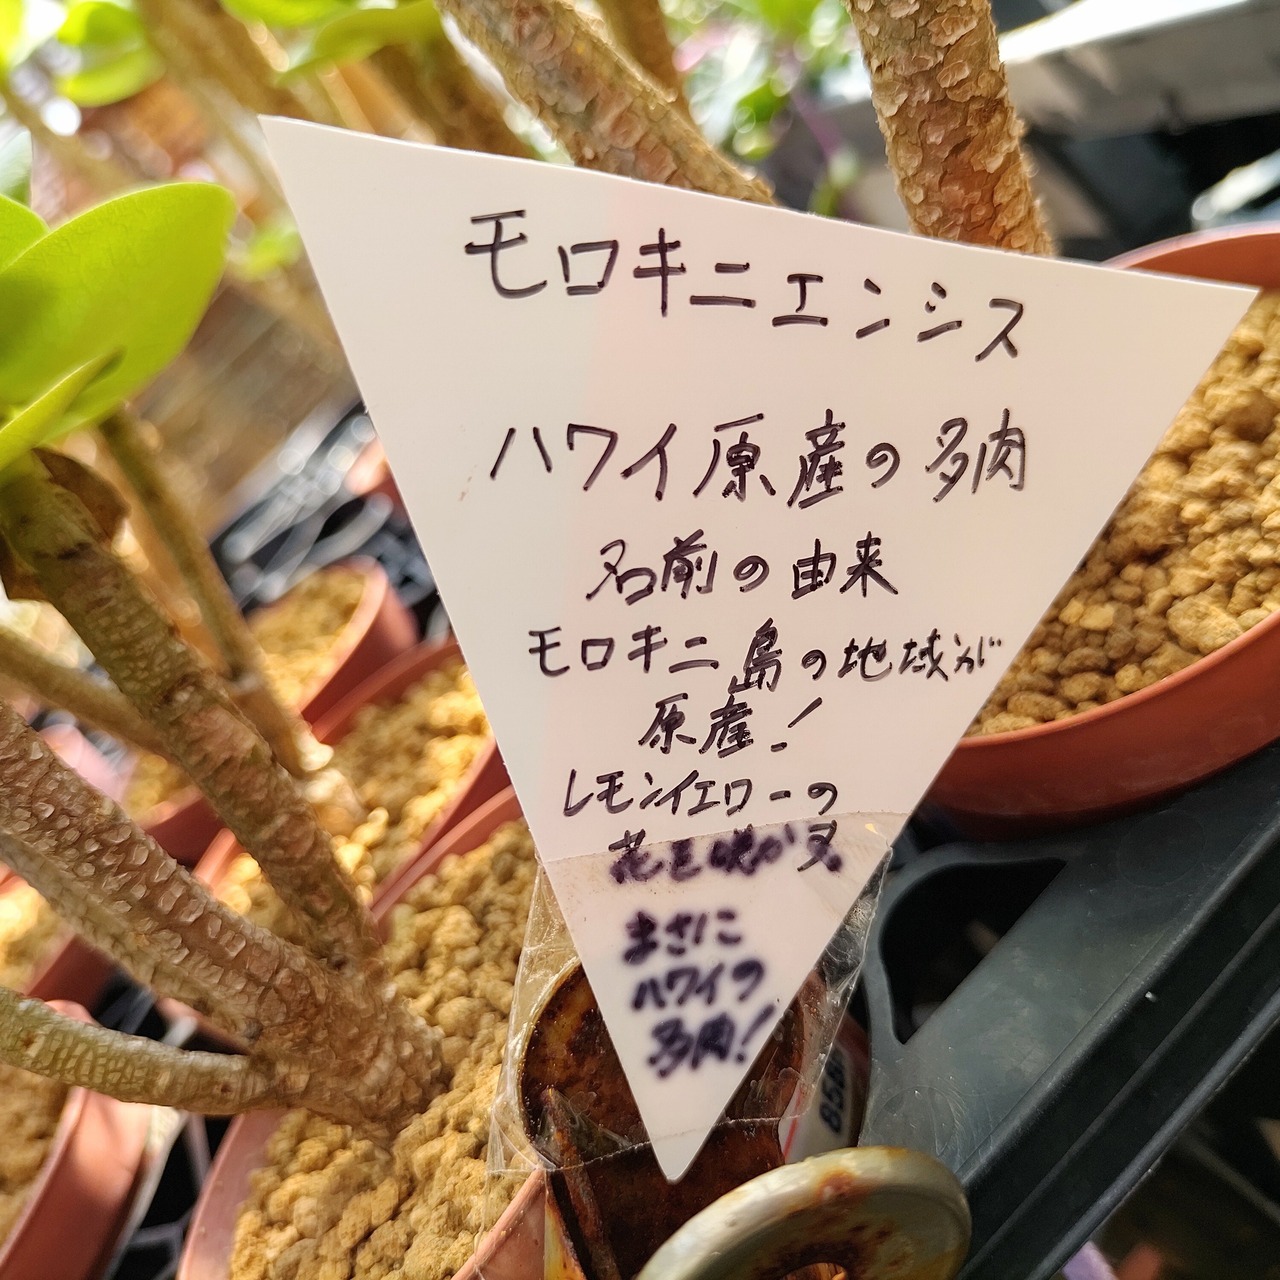 モロキニエンシス
ハワイ原産の多肉
名前の由来
モロキニ島の地域が
原産!
レモンイエローの
花を咲かス
まさに
ハワイの
多肉!
858